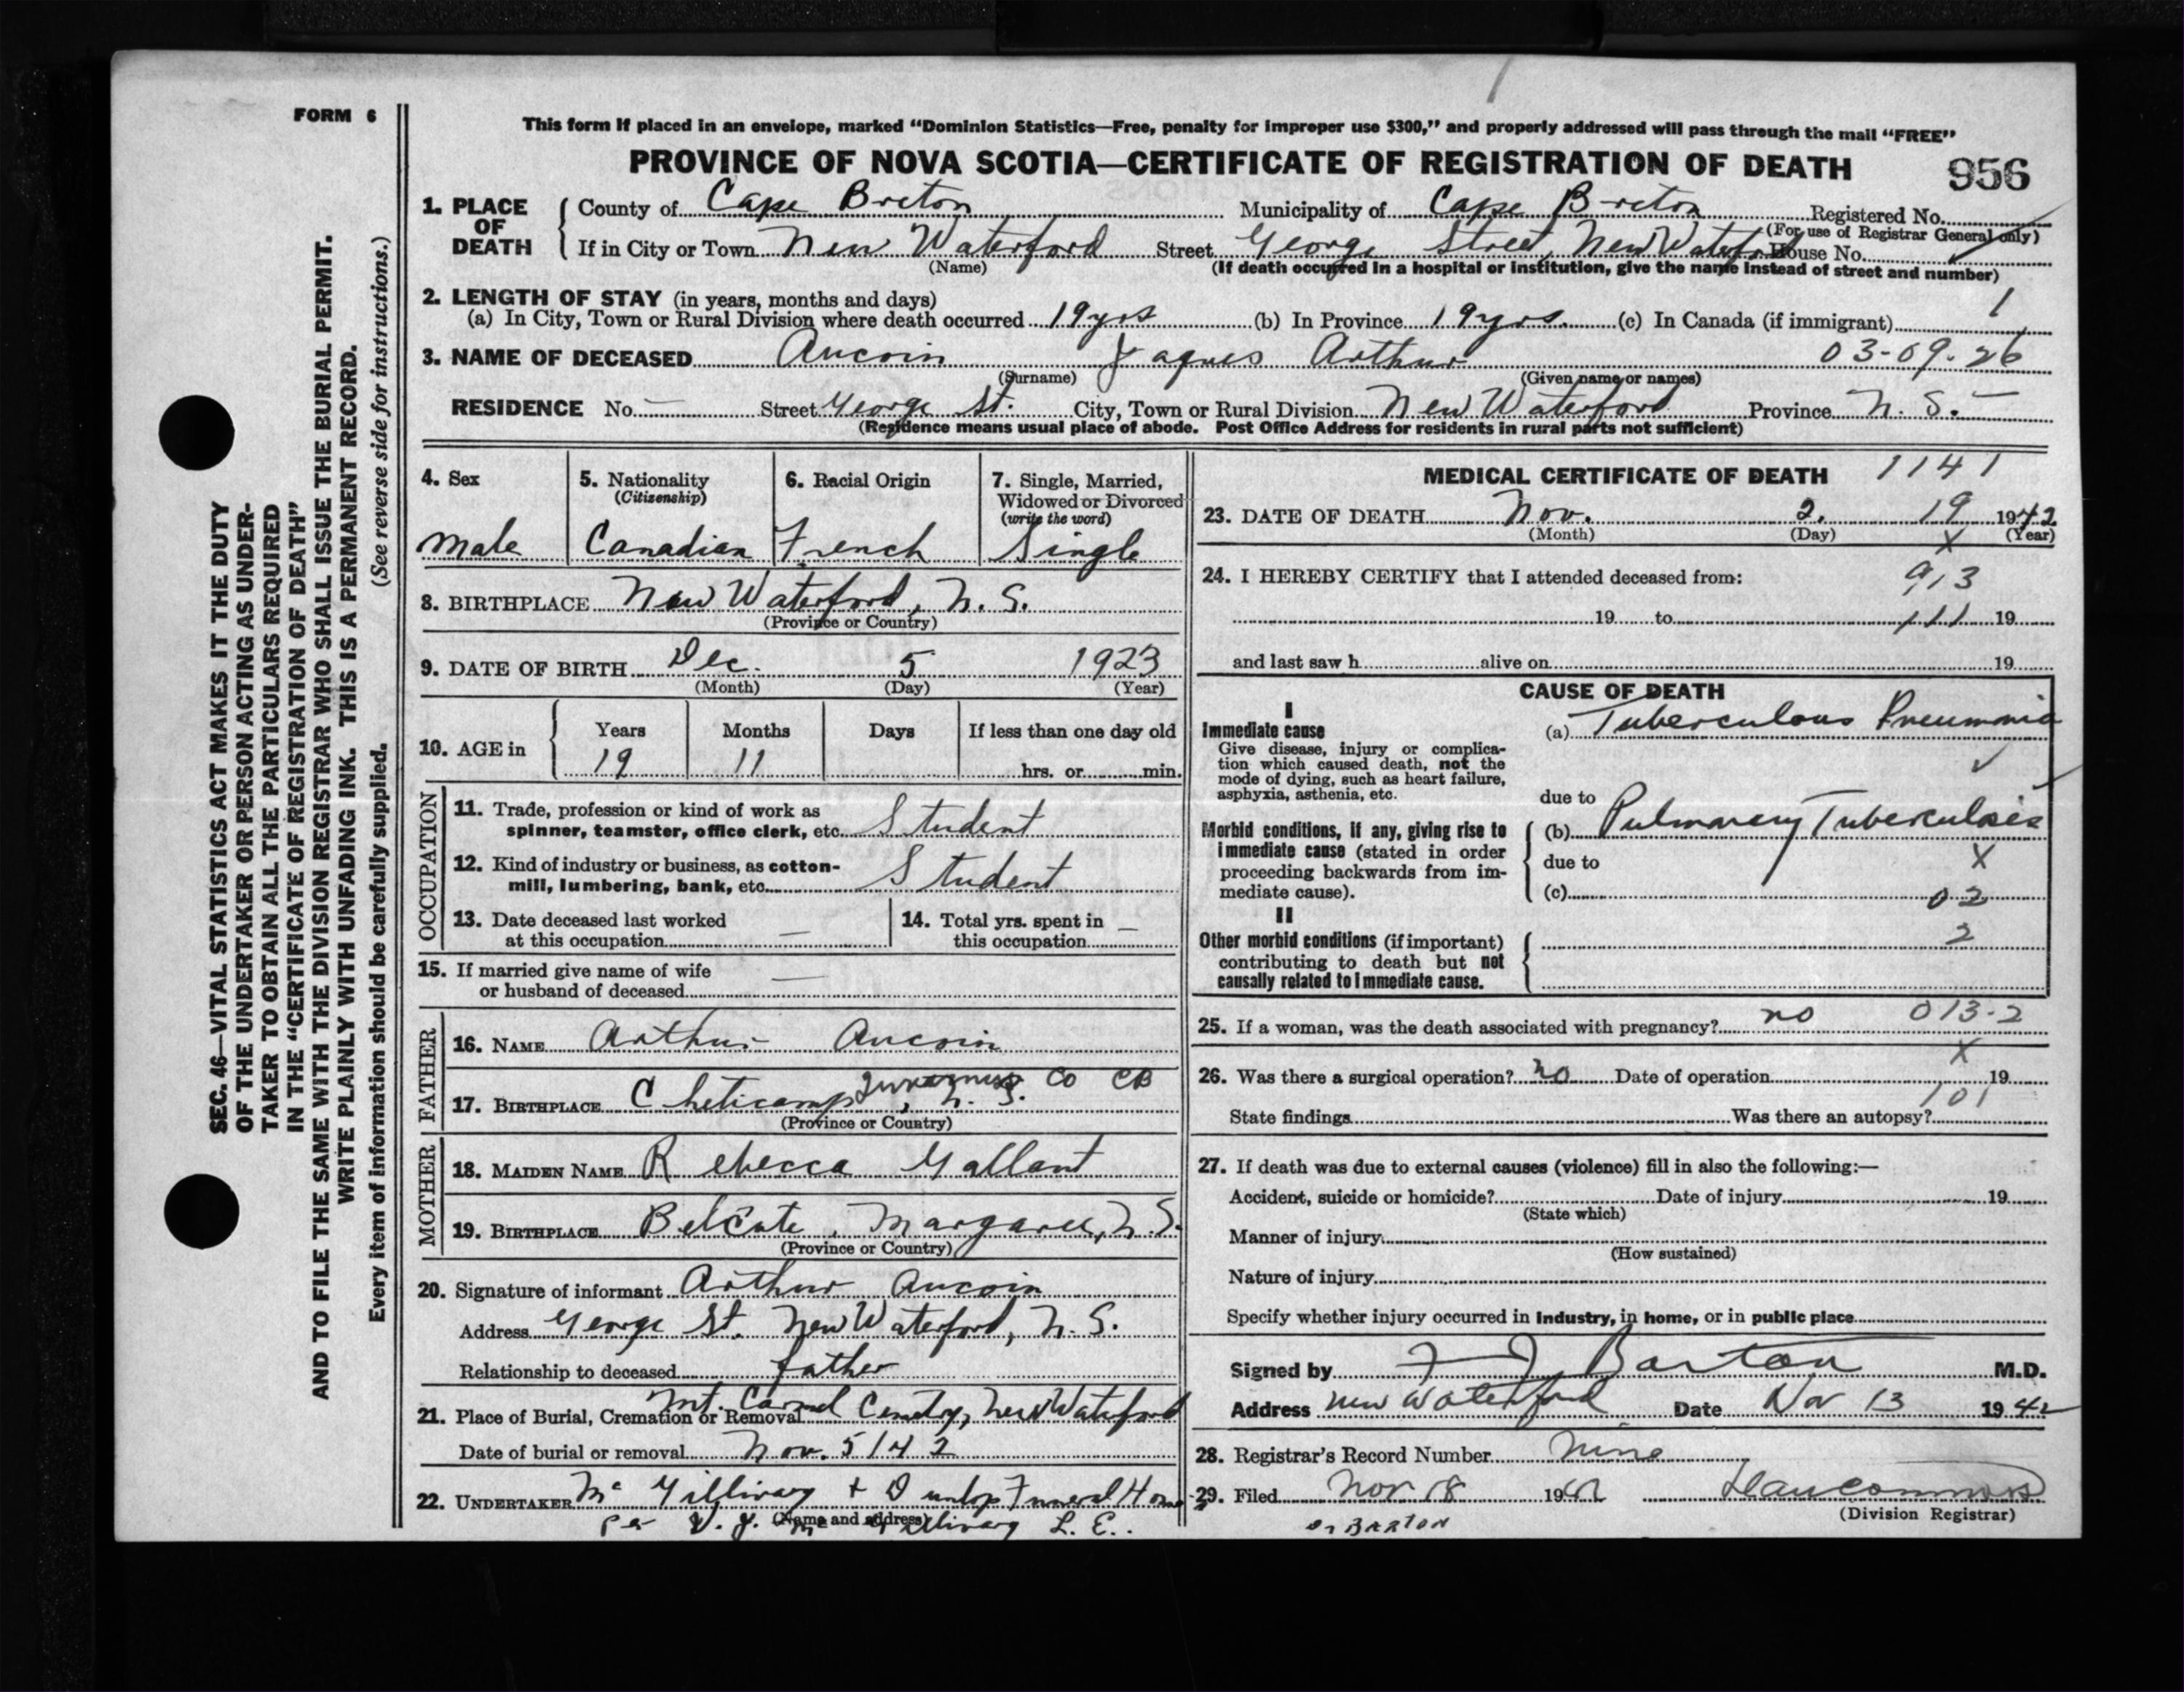 FORM 6
This form if placed in an envelope, marked "Dominion Statistics—Free, penalty for improper use $300," and properly addressed will pass through the mail "FREE"
PROVINCE OF NOVA SCOTIA—CERTIFICATE OF REGISTRATION OF DEATH 956
1. PLACE OF DEATH
County of Cape Breton Municipality of Cape Breton Registered No.
(For use of Registrar General only)
If in City or Town New Waterford Street George Street, New Waterford House No.
(Name) (If death occurred in a hospital or institution, give the name instead of street and number)
2. LENGTH OF STAY (in years, months and days) 1
(a) In City, Town or Rural Division where death occurred 19 yrs (b) In Province 19 yrs. (c) In Canada (if immigrant)
3. NAME OF DECEASED Aucoin Arthur 03-09-26
(Surname) (Given name or names)
RESIDENCE No. — Street George St. City, Town or Rural Division New Waterford Province N. S.
(Residence means usual place of abode. Post Office Address for residents in rural parts not sufficient)
4. Sex
male
5. Nationality
(Citizenship)
Canadian
6. Racial Origin
French
7. Single, Married,
Widowed or Divorced
(write the word)
Single
8. BIRTHPLACE New Waterford, N. S.
(Province or Country)
9. DATE OF BIRTH Dec. 5 1923
(Month) (Day) (Year)
10. AGE in
Years Months Days If less than one day old
19 11 hrs. or min.
OCCUPATION
11. Trade, profession or kind of work as
spinner, teamster, office clerk, etc. Student
12. Kind of industry or business, as cotton-
mill, lumbering, bank, etc. Student
13. Date deceased last worked
at this occupation —
14. Total yrs. spent in
this occupation —
15. If married give name of wife
or husband of deceased —
FATHER
16. NAME Arthur Aucoin
17. BIRTHPLACE Cheticamp, Inverness Co CB N. S.
(Province or Country)
MOTHER
18. MAIDEN NAME Rebecca Gallant
19. BIRTHPLACE Margaree, N.S.
(Province or Country)
20. Signature of informant Arthur Aucoin
Address George St. New Waterford, N. S.
Relationship to deceased father
21. Place of Burial, Cremation or Removal Mt. Carmel Cemetry, New Waterford
Date of burial or removal Nov. 5/42
22. UNDERTAKER McGillivary + Dunlop Funeral Home
(Name and address)
per V. J. McGillivary L. E.
MEDICAL CERTIFICATE OF DEATH 1141
23. DATE OF DEATH Nov. 2. 19 1942
(Month) (Day) (Year)
X
24. I HEREBY CERTIFY that I attended deceased from: 913
19 to 111 19
and last saw h alive on 19
CAUSE OF DEATH
I
Immediate cause
Give disease, injury or complica-
tion which caused death, not the
mode of dying, such as heart failure,
asphyxia, asthenia, etc.
(a) Tuberculous Pneumonia
due to
Morbid conditions, if any, giving rise to
immediate cause (stated in order
proceeding backwards from im-
mediate cause).
(b) Pulmonary Tuberculosis
due to X
(c) 02
II
Other morbid conditions (if important)
contributing to death but not
causally related to immediate cause.
2
25. If a woman, was the death associated with pregnancy? no 013-2
X
26. Was there a surgical operation? no Date of operation 19
101
State findings Was there an autopsy?
27. If death was due to external causes (violence) fill in also the following:—
Accident, suicide or homicide? Date of injury 19
(State which)
Manner of injury
(How sustained)
Nature of injury
Specify whether injury occurred in industry, in home, or in public place
Signed by Barton M.D.
Address New Waterford Date Nov 13 1942
28. Registrar's Record Number nine
29. Filed Nov 18 1942
(Division Registrar)
Dr BARTON
SEC. 46—VITAL STATISTICS ACT MAKES IT THE DUTY
OF THE UNDERTAKER OR PERSON ACTING AS UNDER-
TAKER TO OBTAIN ALL THE PARTICULARS REQUIRED
IN THE "CERTIFICATE OF REGISTRATION OF DEATH"
AND TO FILE THE SAME WITH THE DIVISION REGISTRAR WHO SHALL ISSUE THE BURIAL PERMIT.
WRITE PLAINLY WITH UNFADING INK. THIS IS A PERMANENT RECORD.
Every item of information should be carefully supplied. (See reverse side for instructions.)